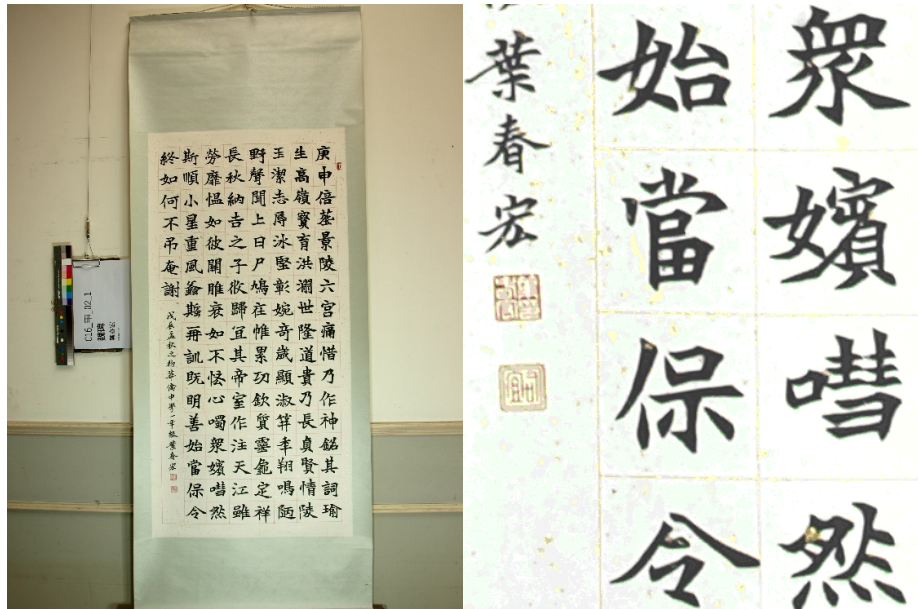 庚申倍塟景陵六宮痛惜乃作神銘其詞瑜
生高嶺寶育洪淵世隆道貴乃長貞賢情陵
玉潔志辱冰堅彰婉奇歲顯淑笄年翔鳴陋
野聲聞上日尸鳩在惟累功欽質靈龜定祥
長秋納吉之子攸歸宜其帝室作注天江雖
勞靡慍如彼關雎衰如不怪心噣衆嬪嘒然
斯順小星重風再訓旣明善始當保令
終如何不弔奄謝
戊辰孟秋之初華僑中學一年級葉春宏
C16_甲_02_1
衆嬪嘒然
始當保令
葉春宏